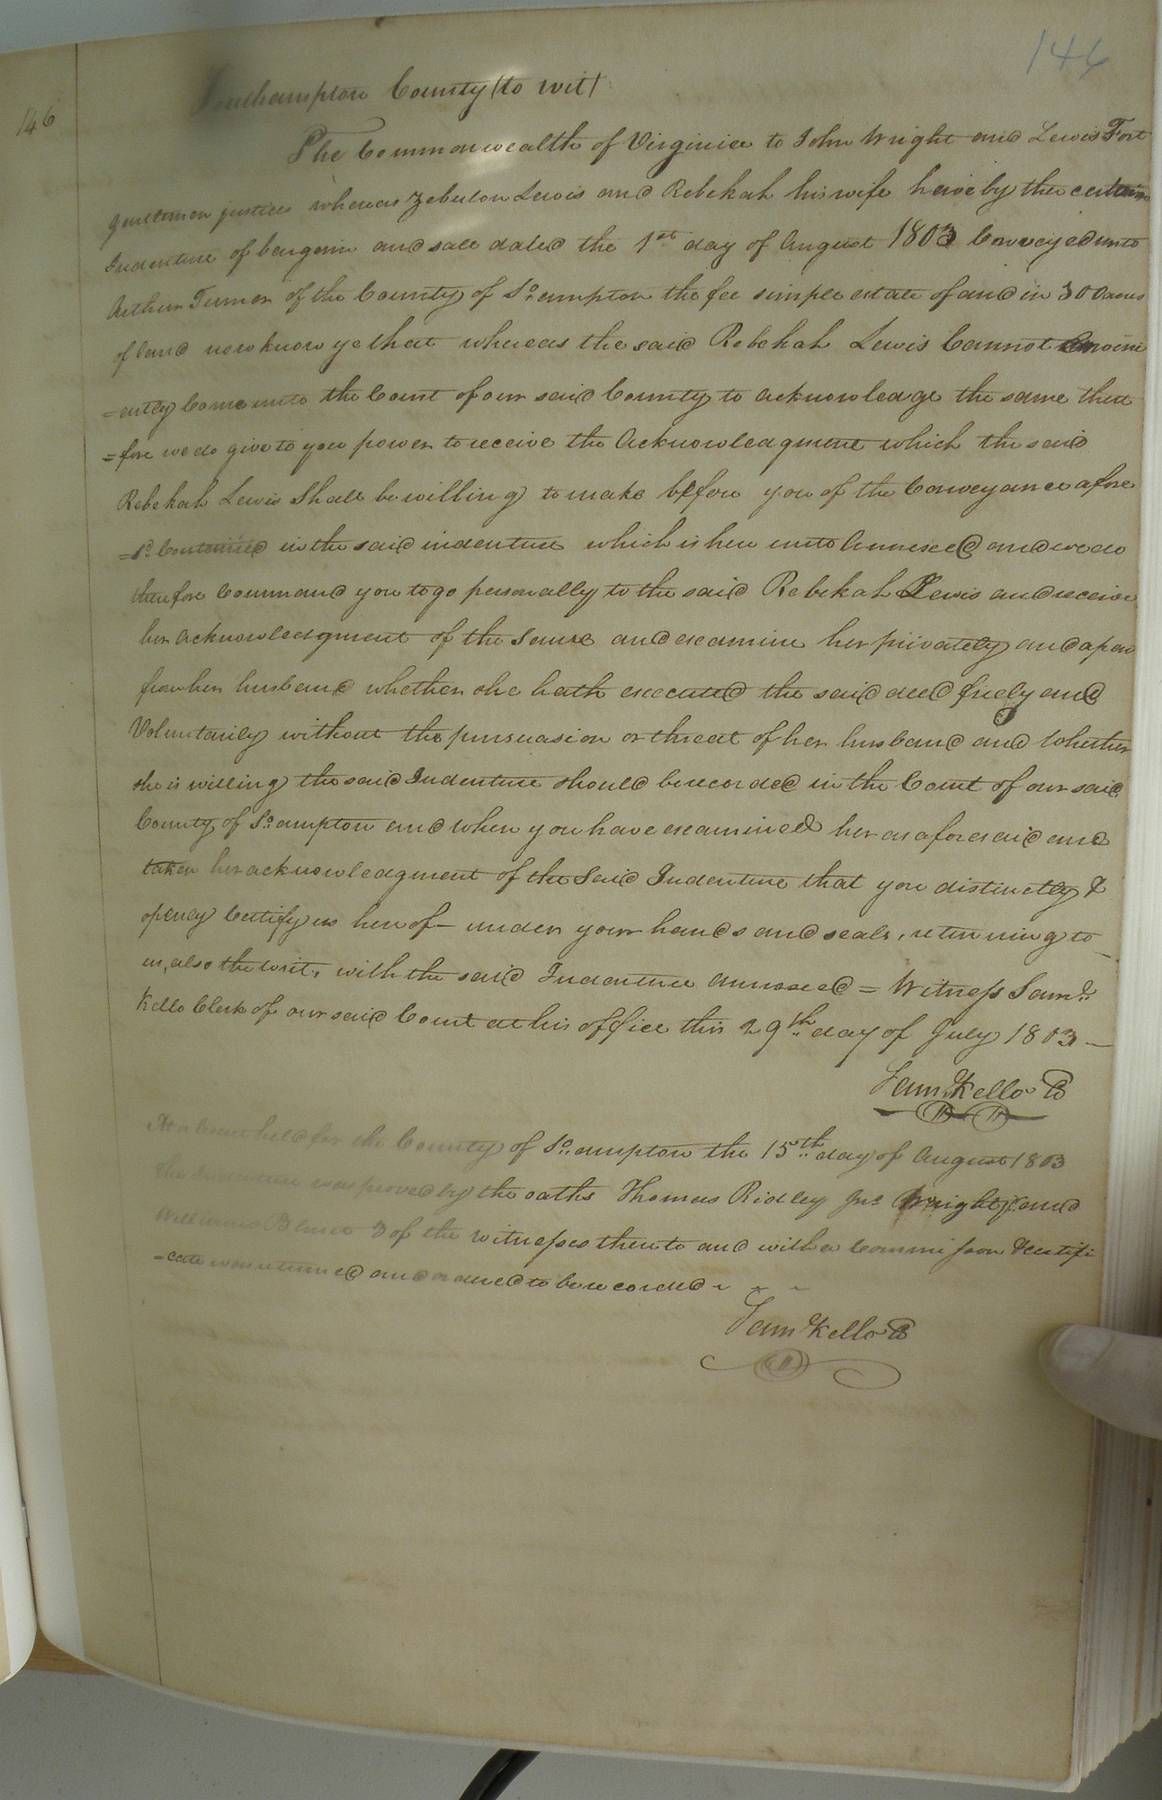 146
146
Southampton County (to wit)
The Commonwealth of Virginia to John Wright and Lewis Fort
gentlemen justices whereas Zebulon Lewis and Rebekah his wife have by the certain
Indenture of bargain and sale dated the 1st day of August 1803 Conveyed unto
Arthur Turner of the County of So. ampton the fee simple estate of and in 300 acres
of land now know ye that whereas the said Rebekah Lewis Cannot Conveni
=ently Come unto the Court of our said County to acknowledge the same there
=fore we do give to you power to receive the Acknowledgment which the said
Rebekah Lewis Shall be willing to make before you of the Conveyance afore
=sd. Contained in the said indenture which is here unto Annexed and we do
therefore Command you to go personally to the said Rebekah Lewis and receive
her acknowledgment of the same and examine her privately and apart
from her husband whether she hath executed the said deed freely and
Voluntarily without the pursuasion or threat of her husband and Whether
she is willing the said Indenture should be recorded in the Court of our said
County of So. ampton and when you have examined her as aforesaid and
taken her acknowledgment of the Said Indenture that you distinctly &
openly Certify us hereof under your hands and seals, returning to
us, also the writ, with the said Indenture annexed = Witness Saml.
Kello Clerk of our said Court at his office this 29th day of July 1803
Sam Kello C
At a Court held for the County of So. ampton the 15th day of August 1803
the Indenture was proved by the oaths Thomas Ridley Jno Wright and
Williams 3 of the witnesses thereto and with a Commission & Certifi
=cate was returned and ordered to be recorded
Sam Kello C